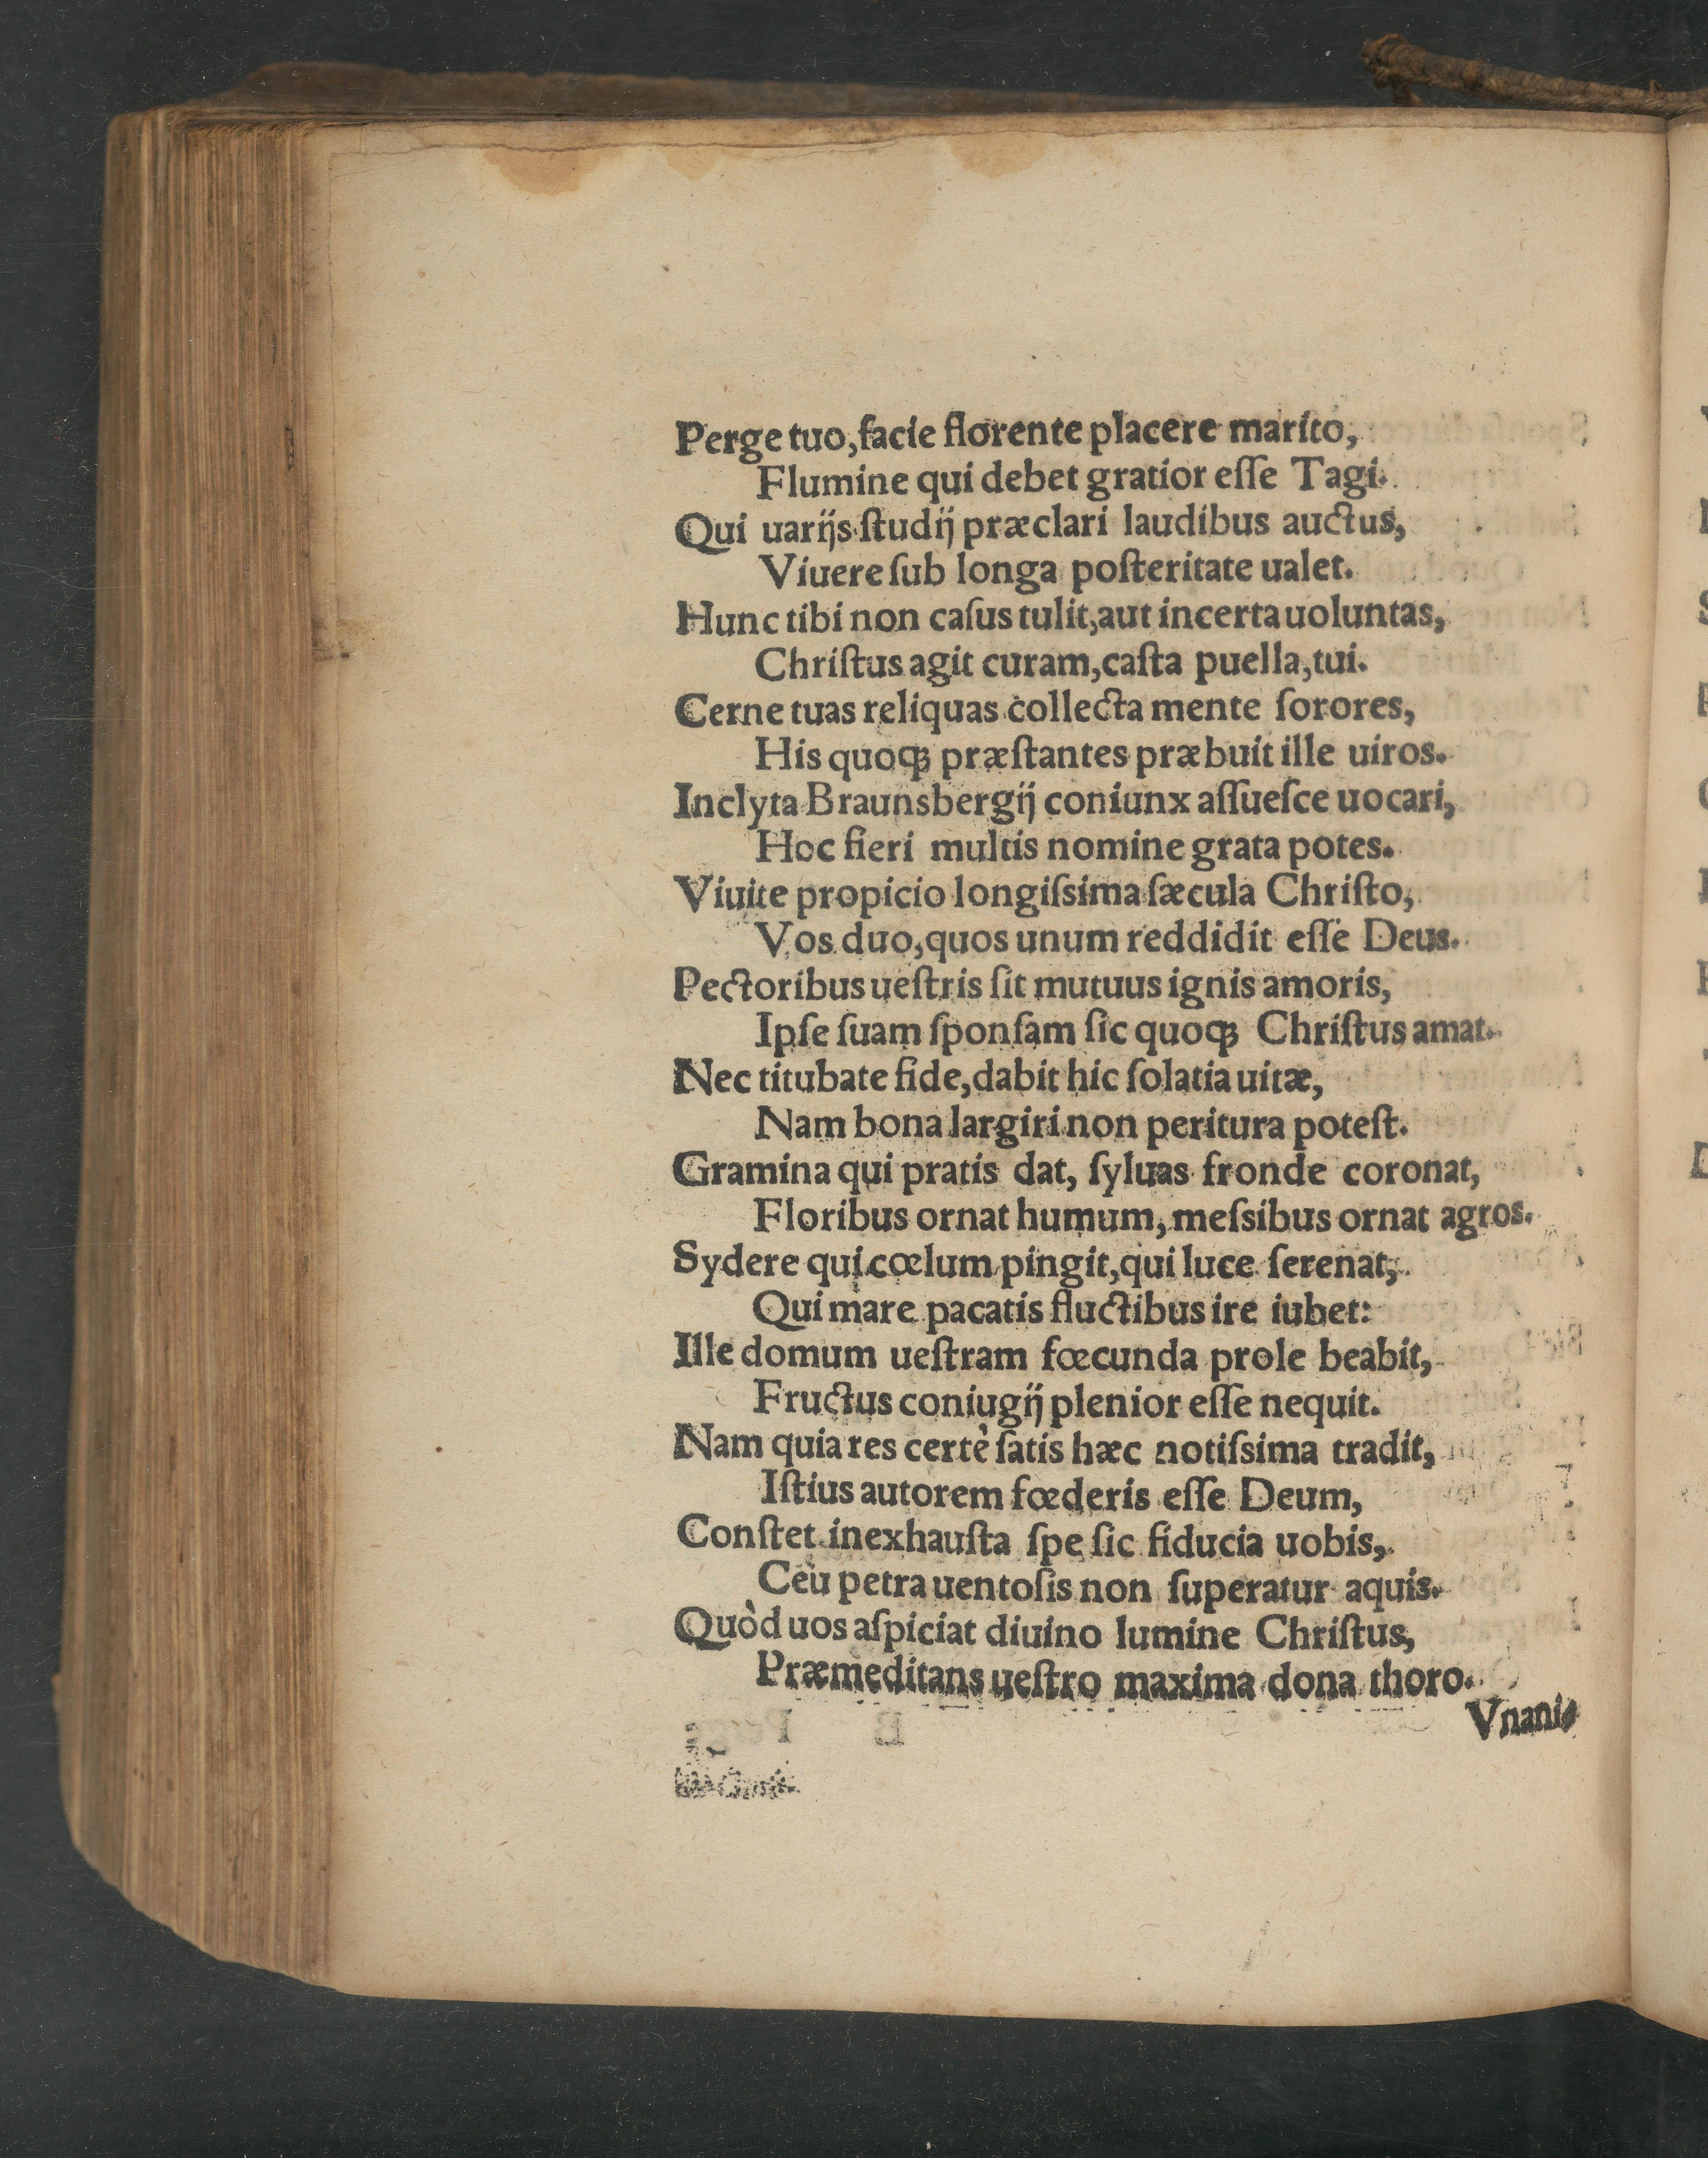 Perge tuo, facie florente placere marito,
Flumine qui debet gratior eſſe Tagi.
Qui uarijs ſtudij præclari laudibus auctus,
Viuere ſub longa poſteritate ualet.
Hunc tibi non caſus tulit, aut incerta uoluntas,
Chriſtus agit curam, caſta puella, tui.
Cerne tuas reliquas collecta mente ſorores,
His quoqꝫ præſtantes præbuit ille uiros.
Inclyta Braunsbergij coniunx aſſueſce uocari,
Hoc fieri multis nomine grata potes.
Viuite propicio longiſsima ſæcula Chriſto,
Vos duo, quos unum reddidit eſſe Deus.
Pectoribus ueſtris ſit mutuus ignis amoris,
Ipſe ſuam ſponſam ſic quoqꝫ Chriſtus amat.
Nec titubate fide, dabit hic ſolatia uitæ,
Nam bona largiri non peritura poteſt.
Gramina qui pratis dat, ſyluas fronde coronat,
Floribus ornat humum, meſsibus ornat agros.
Sydere qui cœlum pingit, qui luce ſerenat,
Qui mare pacatis fluctibus ire iubet:
Ille domum ueſtram fœcunda prole beabit,
Fructus coniugij plenior eſſe nequit.
Nam quia res certè ſatis hæc notiſsima tradit,
Iſtius autorem fœderis eſſe Deum,
Conſtet inexhauſta ſpe ſic fiducia uobis,
Ceù petra uentoſis non ſuperatur aquis.
Quòd uos aſpiciat diuino lumine Chriſtus,
Præmeditans ueſtro maxima dona thoro.
Vnani⸗